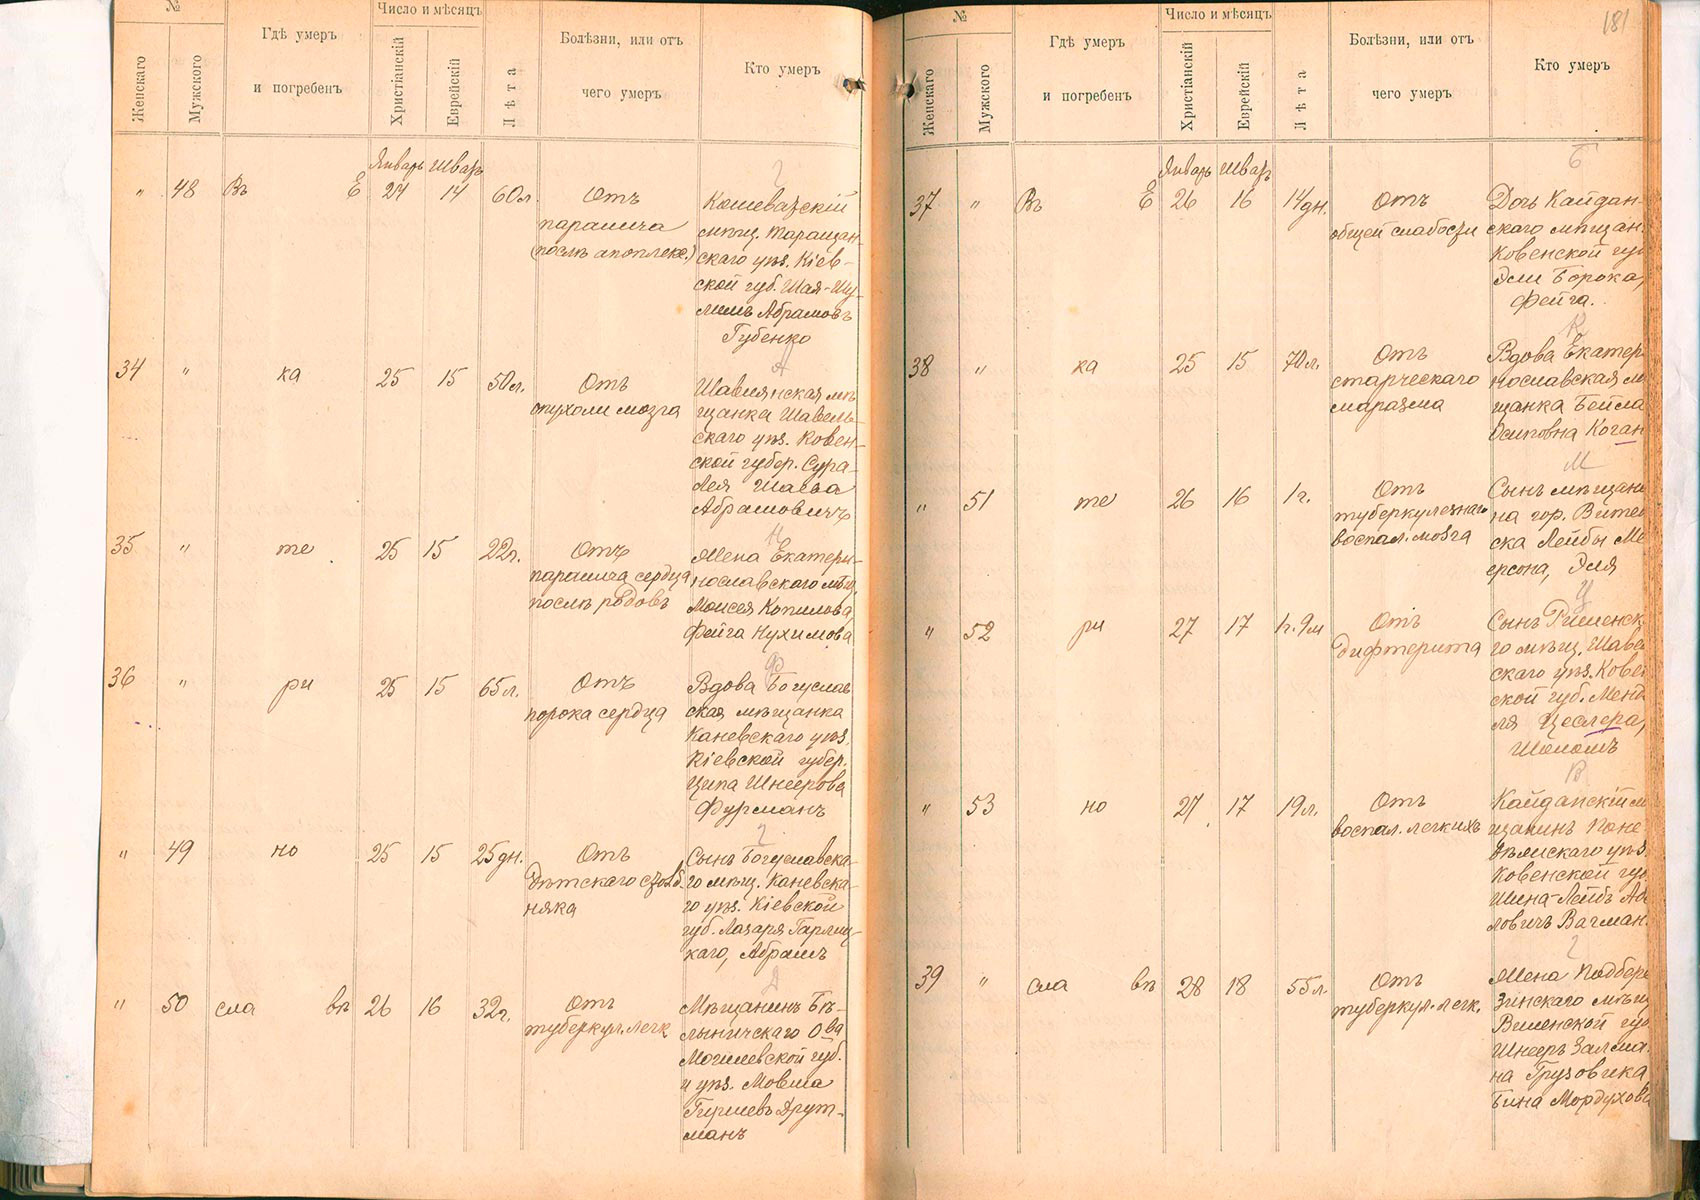 №
Число и мѣсяцъ
Женскаго
Мужского
Гдѣ умеръ
и погребенъ
Христіанскій
Еврейскій
Лѣта
Болѣзни, или отъ
чего умеръ
Кто умеръ
Январь Шватъ
" 48 Въ Е 24 14 60л.
Отъ
паралича
(послѣ апоплекс.)
Кошеватскій
мѣщ. Таращан-
скаго уѣз. Кіев-
ской губ. Шая-Шу-
лимъ Абрамовъ
Губенко
34 " ка 25 15 50л.
Отъ
опухоли мозга
Шавлянская мѣ
щанка Шавель-
скаго уѣз. Ковен-
ской губер. Сура-
Лея Шаева
Абрамовичъ
35 " те 25 15 22г.
Отъ
паралича сердца
послѣ родовъ
Жена Екатери-
нославскаго мѣщ.
Моисея Копилова,
Фейга Нухимова
36 " ри 25 15 65л.
Отъ
порока сердца
Вдова Богуслав
ская мѣщанка
Каневскаго уѣз.
Кіевской губер.
Ципа Шнеерова
Фурманъ
" 49 но 25 15 25дн.
Отъ
дѣтскаго столб-
няка
Сынъ Богуславска-
го мѣщ. Каневска-
го уѣз. Кіевской
губ. Лазаря Гарлиц-
каго, Абрамъ
" 50 сла вѣ 26 16 32г.
Отъ
туберкул. легк.
Мѣщанинъ Бѣ-
лыничскаго Ова
Могилевской губ.
и уѣз. Мовша
Гиршевъ Друт-
манъ
181
№
Число и мѣсяцъ
Женскаго
Мужского
Гдѣ умеръ
и погребенъ
Христіанскій
Еврейскій
Лѣта
Болѣзни, или отъ
чего умеръ
Кто умеръ
Январь Шватъ
Б
37 " Въ Е 26 16 14дн.
Отъ
общей слабости
Дочь Кайдан-
скаго мѣщан.
Ковенской гу
Эли Борока,
Фейга.
К
38 " ка 25 15 70л.
Отъ
старческаго
маразма
Вдова Екатер
нославская м
щанка Бейла
Осиповна Коган
М
" 51 те 26 16 1г.
Отъ
туберкулезнаго
воспал. мозга
Сынъ мѣщани
на гор. Витеб
ска Лейбы Ме
ерсона, Эля
Ц
" 52 ри 27 17 1г. 9м
Отъ
дифтерита
го мѣщ. Шаве
скаго уѣз. Ковен
ской губ. Менд
ля Цеслера,
Шоломъ
В
" 53 но 27 17 19л.
Отъ
воспал. легкихъ
Кайданскій м
щанинъ Поне
вѣжскаго уѣз.
Ковенской гу
ловичъ Вагман.
Г
39 " сла вѣ 28 18 55л.
Отъ
туберкул. легк.
Жена Подбере
зинскаго мѣщ
Виленской гу
Шнееръ Залма
на Грузовика
Бина Мордухова